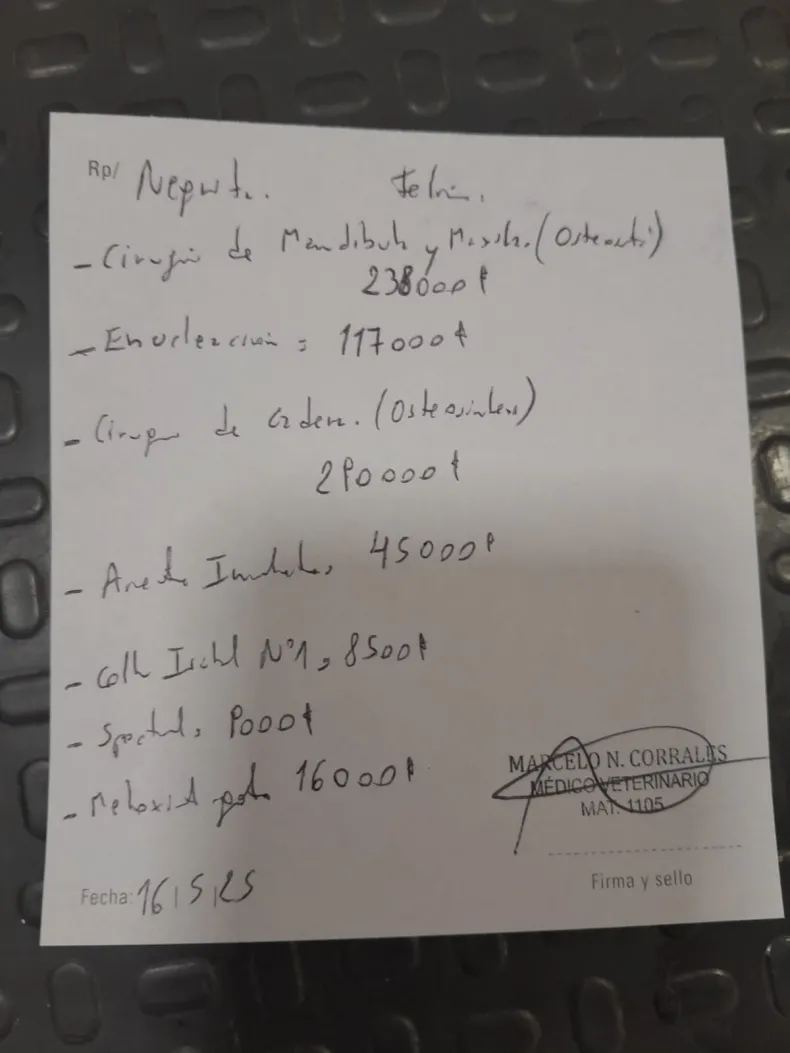 Rp/ Felin.
- Cirugia de Mandibula y Maxila. (Osteosintesis)
238000 $
- Enucleacion : 117000 $
- Cirugia de Cadera. (Osteosintesis)
290000 $
- Anestesia Inhalatoria, 45000 $
- Collar Isabel N°1, 8500 $
- 9000 $
- Meloxicam gotas 16000 $
MARCELO N. CORRALES
MÉDICO VETERINARIO
MAT. 1105
Firma y sello
Fecha: 16/5/25